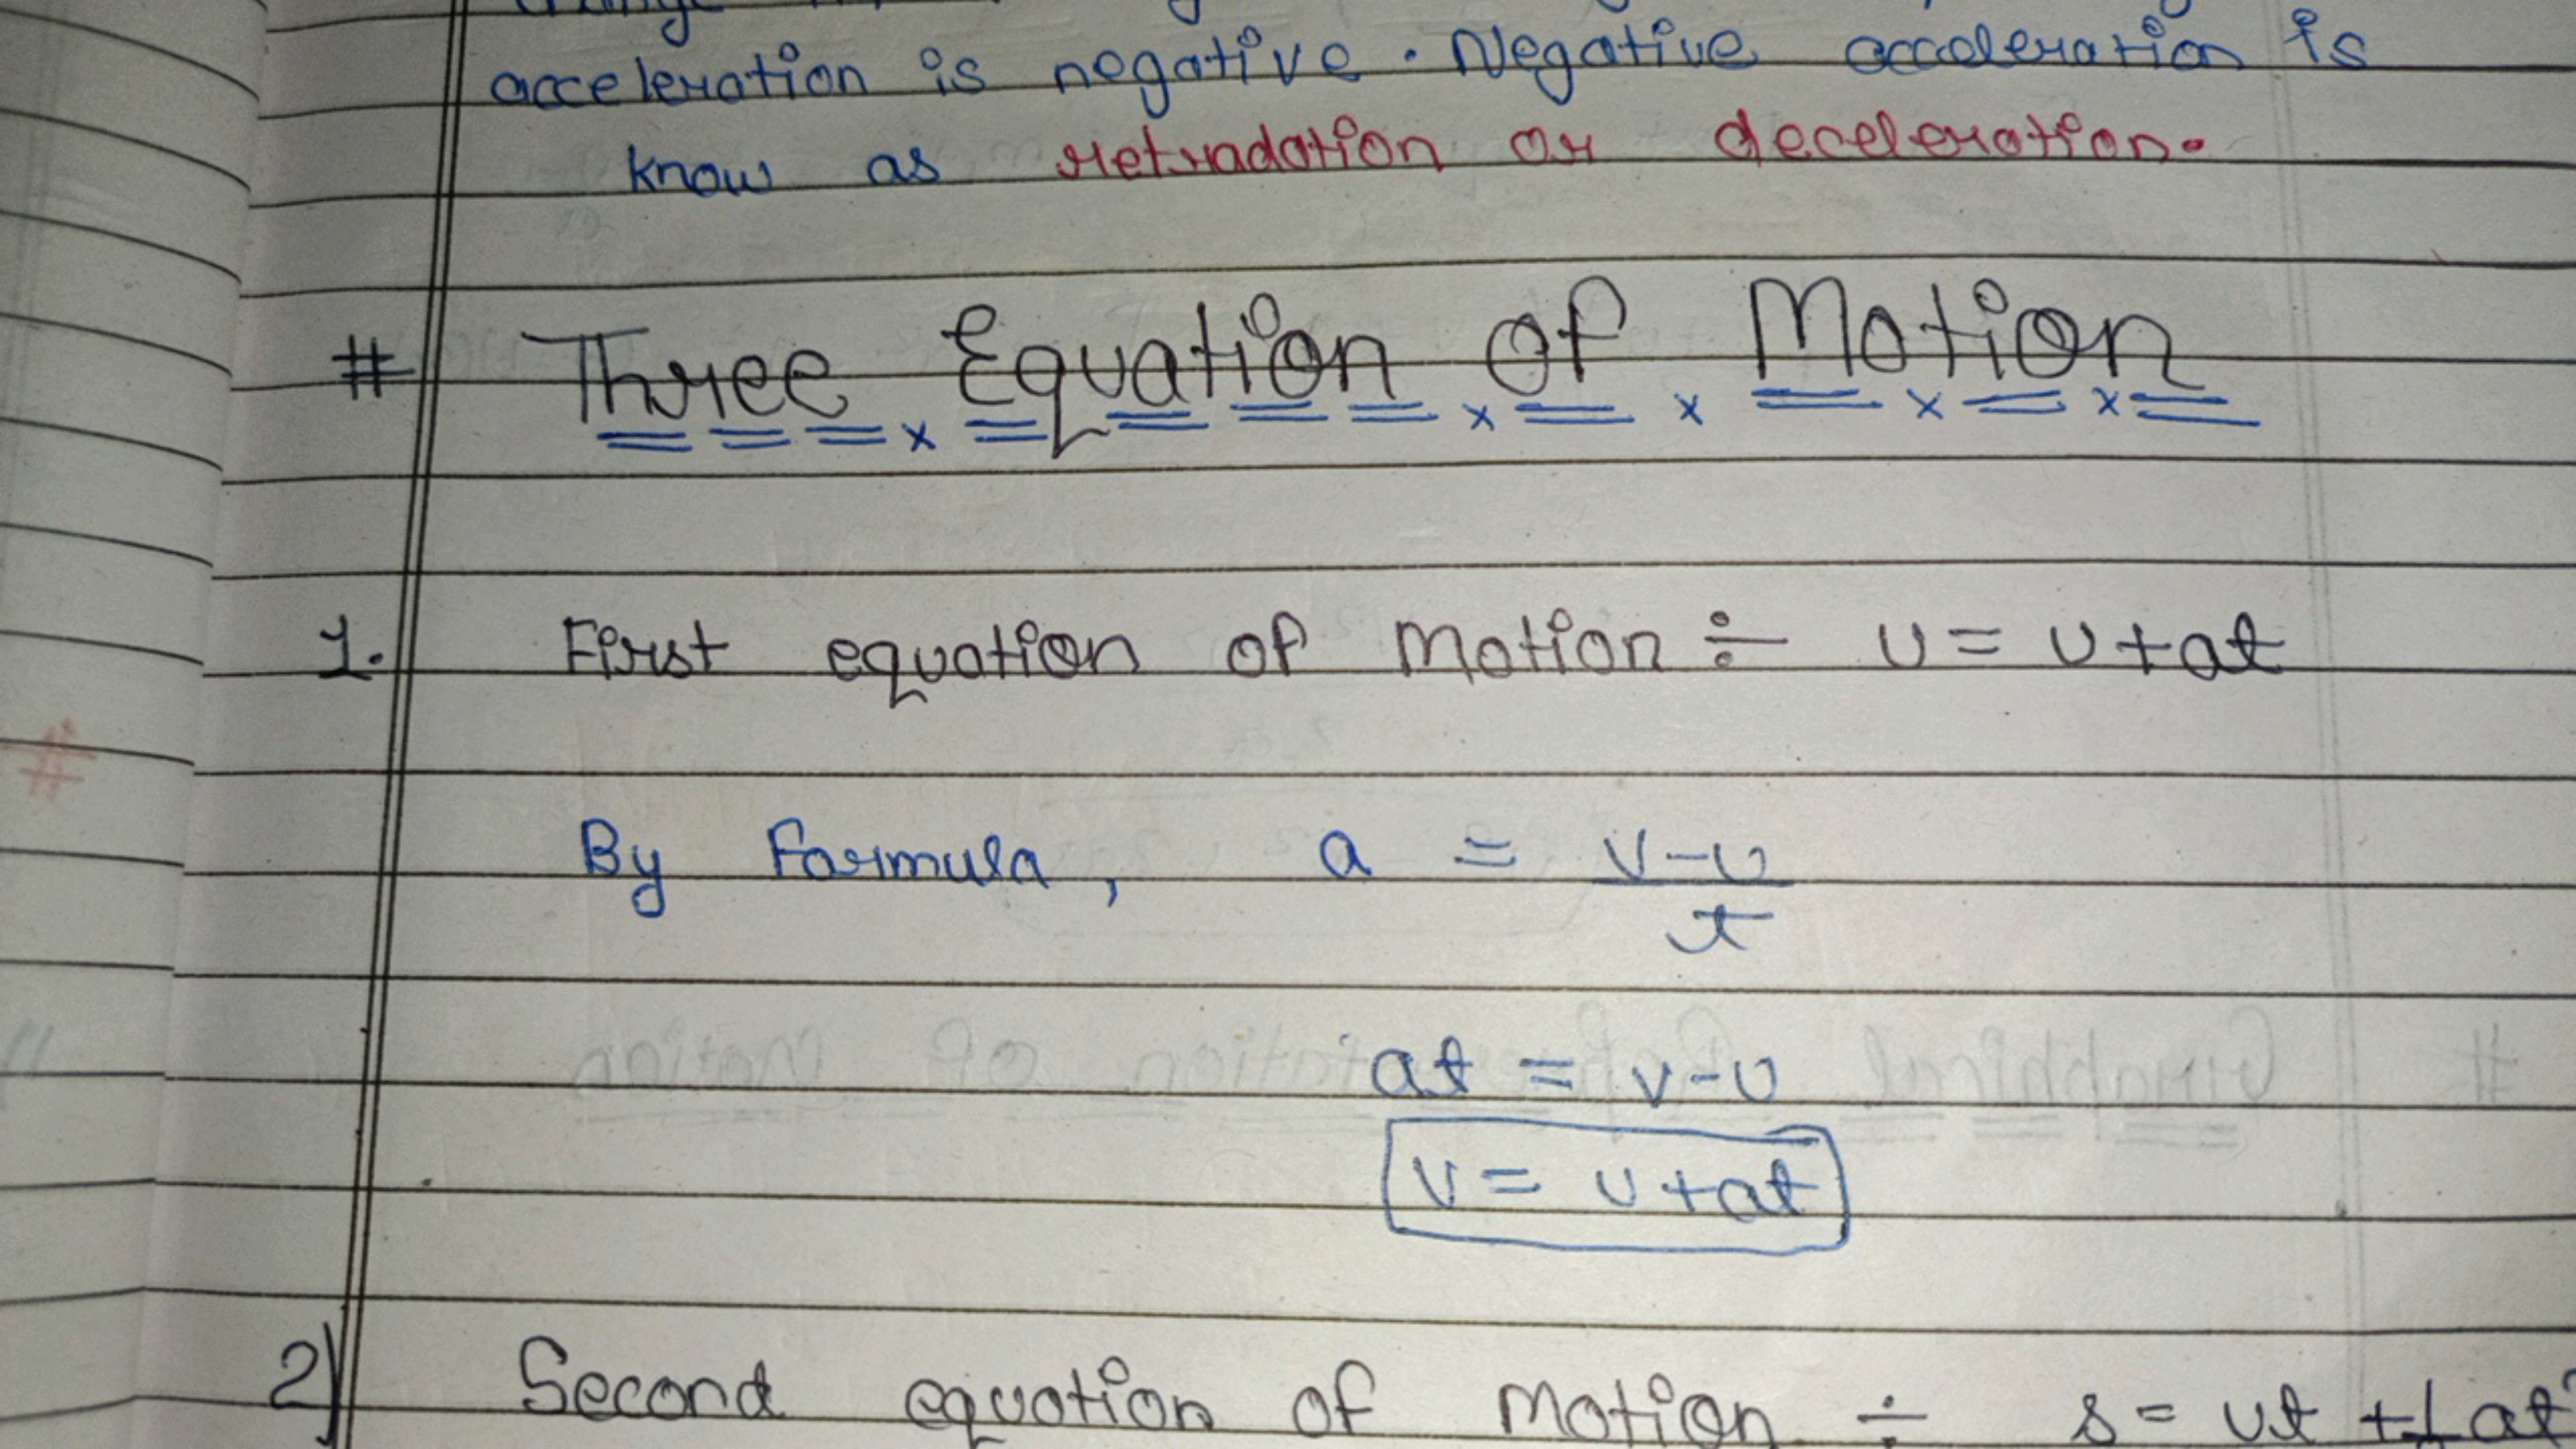 change
acceleration is negative. Negative acceleration is
know as retradation or deceleration.
# Three Equation of Motion
1. First equation of Motion ÷ v = u + at
By Formula, a = v-u
t
at = v-u
v = u + at
2) Second equation of Motion ÷ s = ut + 1 at²
#
# Graphical of Motion